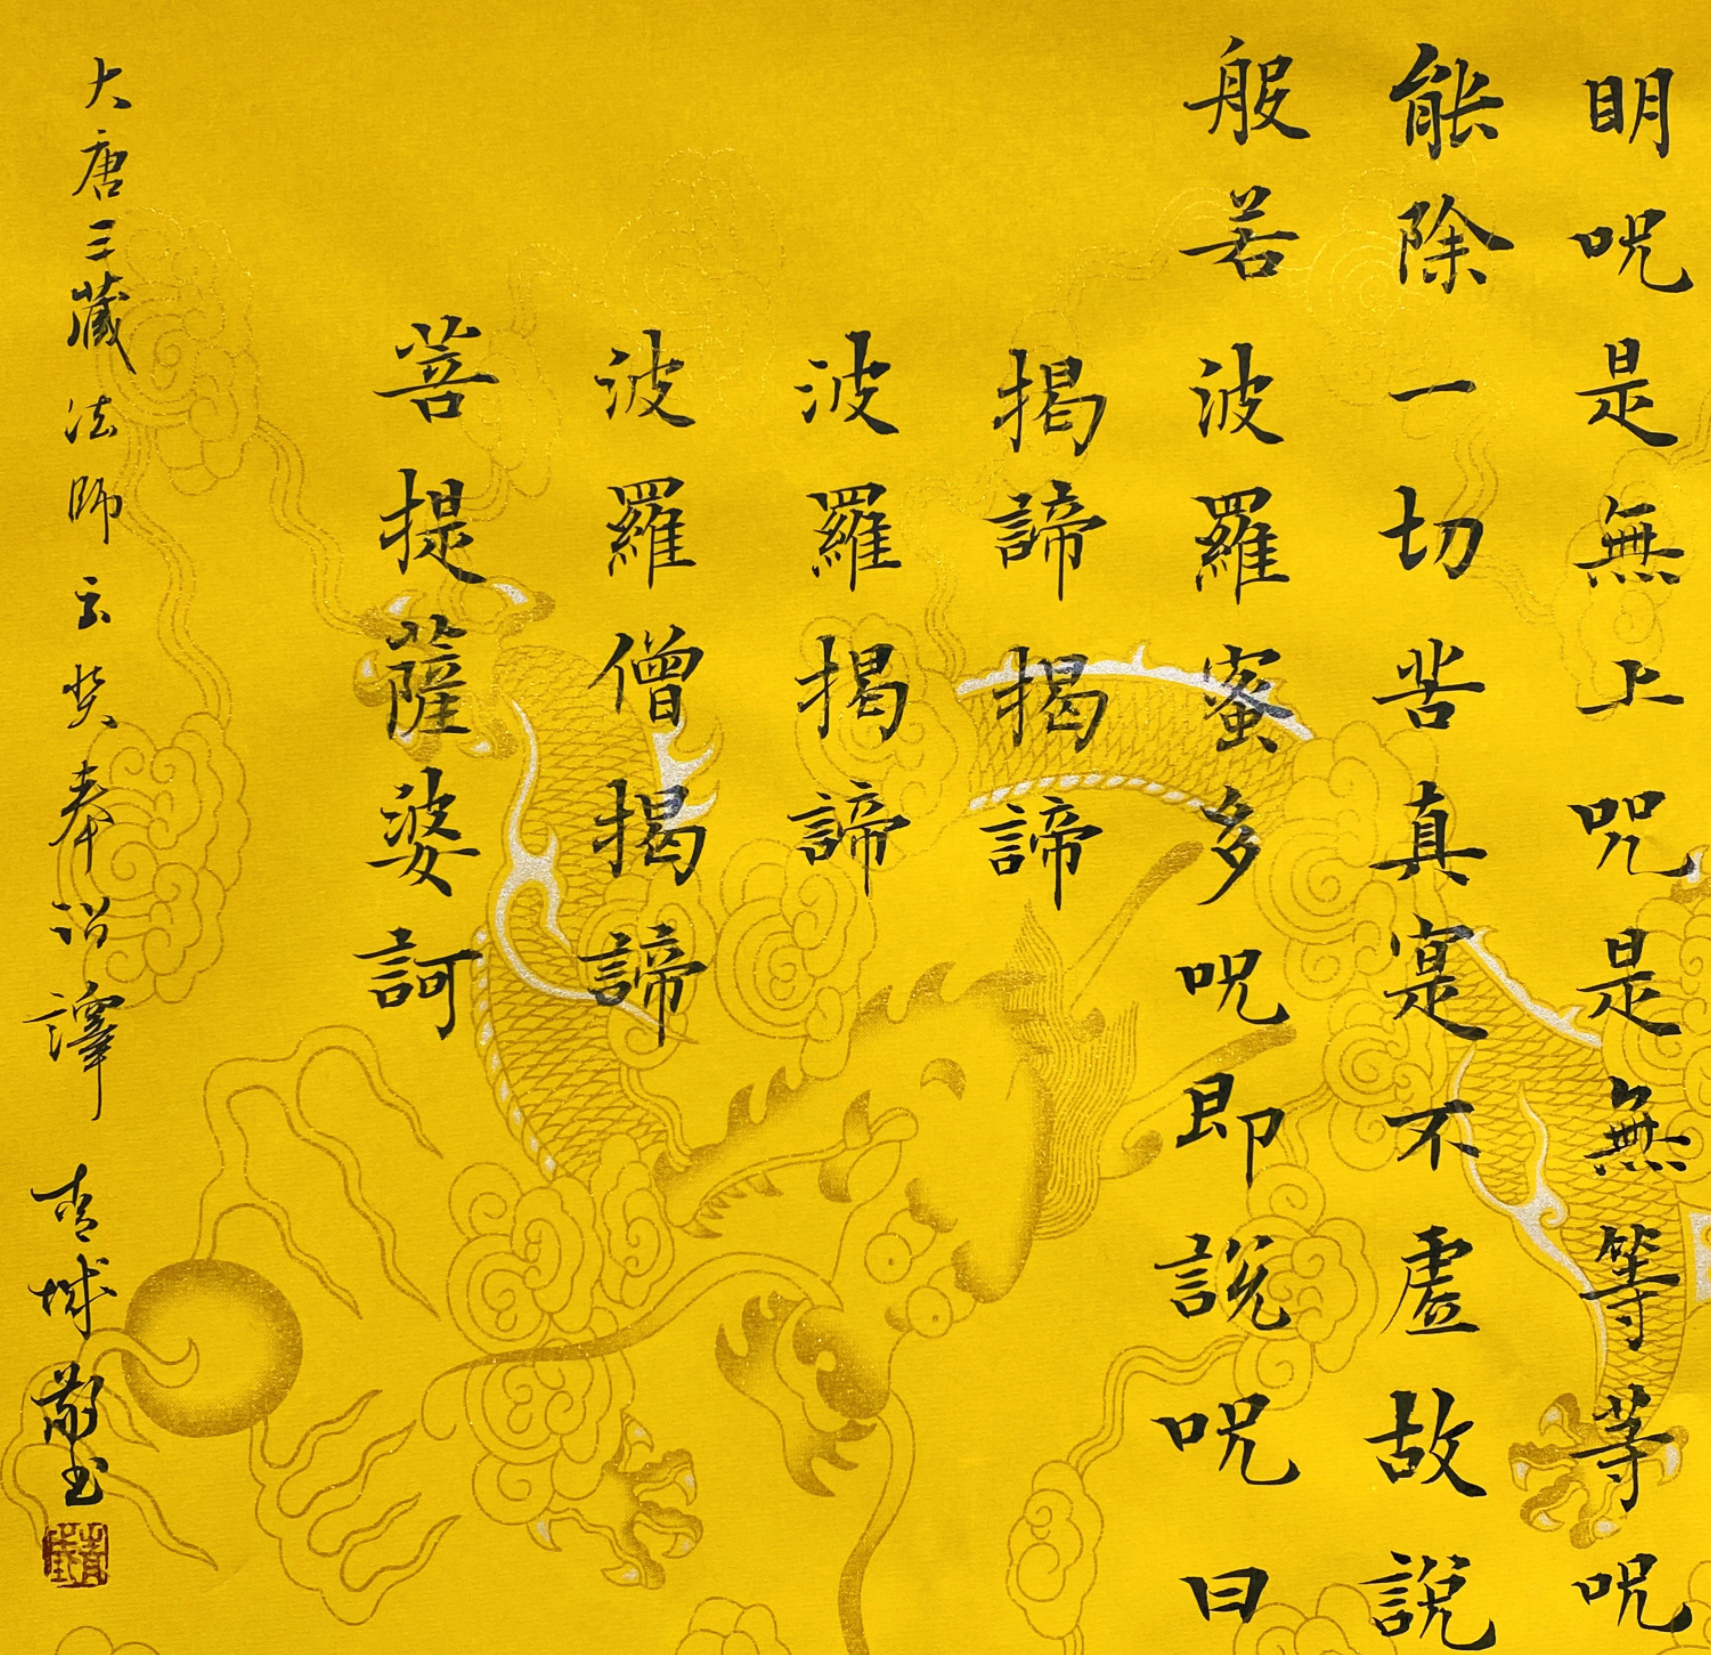 明咒是無上咒是無等等咒
能除一切苦真寔不虛故說
般若波羅蜜多咒即說咒曰
揭諦揭諦
波羅揭諦
波羅僧揭諦
菩提薩婆訶
大唐三藏法師玄奘奉詔譯
青城敬书
青城